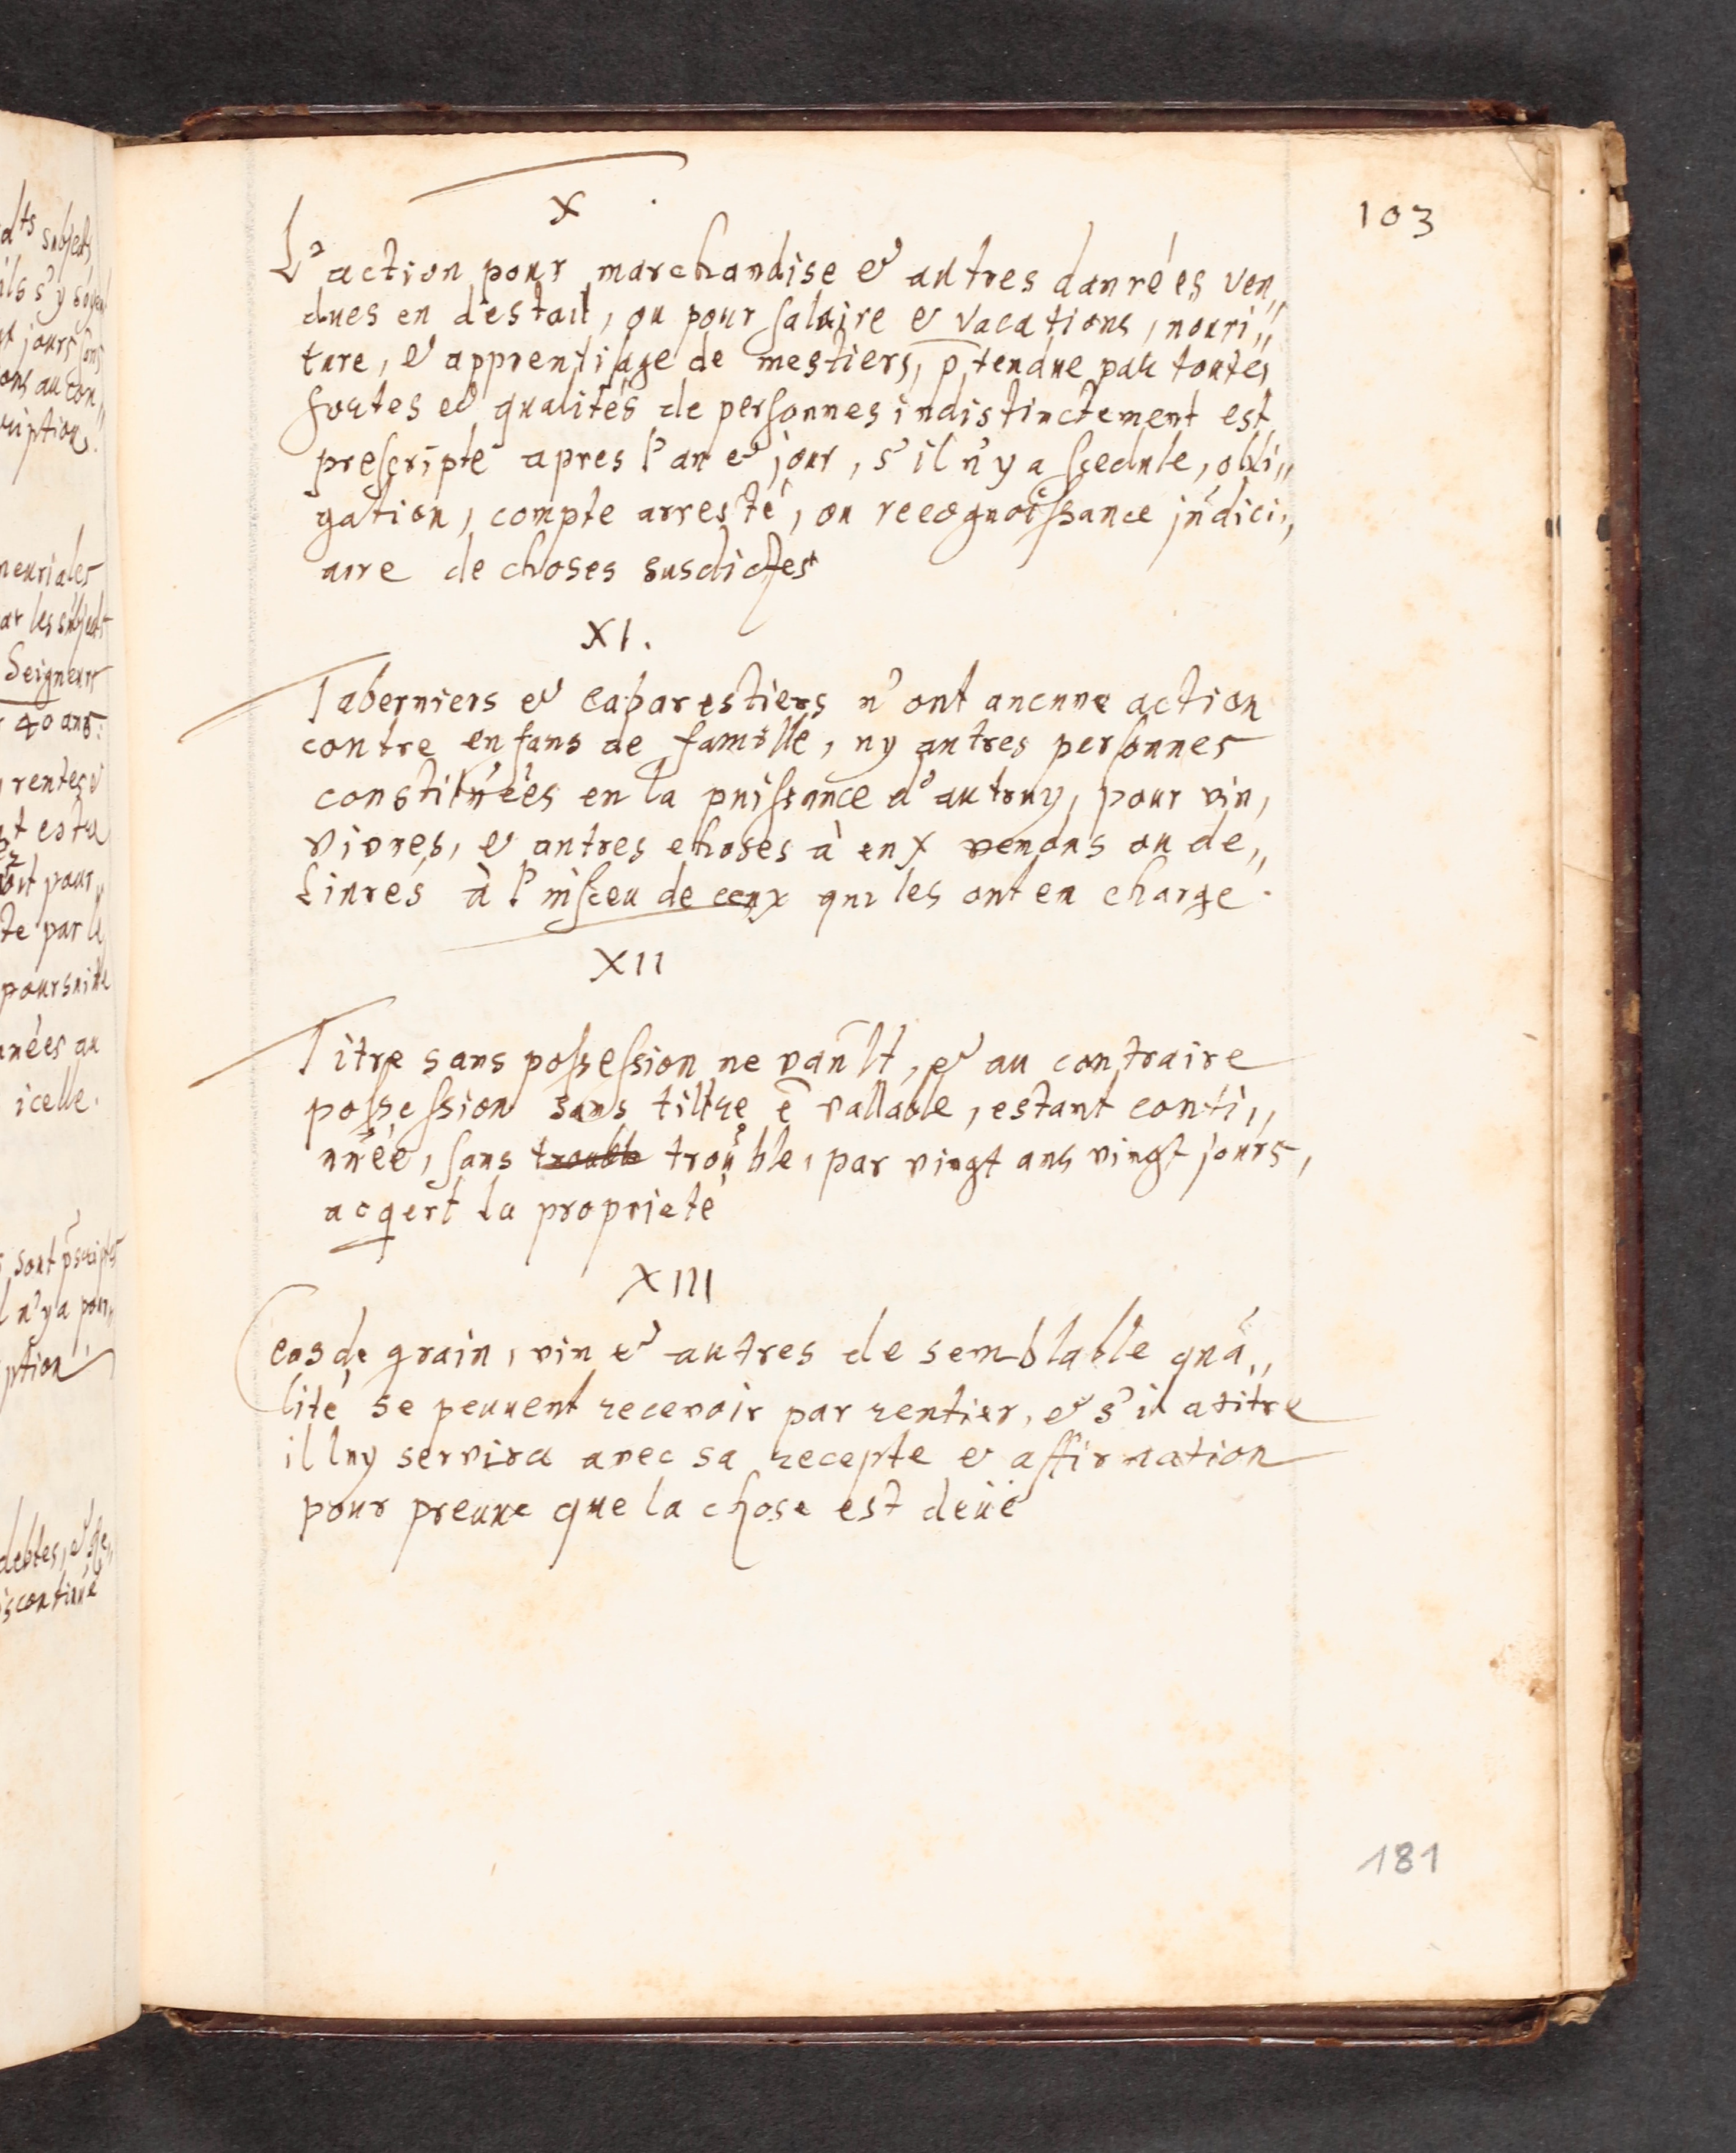 X.
103
L'action pour marchandise & autres danrées ven„
dues en destail, ou pour salaire & vacations, nouri„
ture, & apprentisage de mestiers, p̄tendue par toutes
sortes & qualités de personnes indistinctement est
prescripte apres l'an & jour, s'il n'y a scedule, obli„
gation, compte arresté, ou recognoissance judici„
aire de choses susdictes
XI.
Taberniers & cabarestiers n'ont aucune action
contre enfans de famille, ny autres personnes
constituées en la puissance d'autruy, pour vin,
vivres, & autres choses à eux vendus ou de„
livrés à l'insceu de ceux qui les ont en charge.
XII
Titre sans possession ne vault, & au contraire
possession sans tiltre ē vallable, estant conti„
nuée, sans trouble trouble, par vingt ans vingt jours,
acqert la proprieté
XIII
Cens de grain, vin & autres de semblable qua„
lité se peuuent recevoir par rentier, & s'il a titre
il luy servira avec sa recepte & affirmation
pour preuue que la chose est deüe
181
dts subjects
ils s'y
jours sans
ons au con„
cription.
neuriales
ar les subjects
Seigneurs
40 ans:
rentes &
estre
pour
te par le
poursuitte
nées au
icelle.
sont p̄scriptes
l n'y a pour„
ption
debtes, &
iscontinué